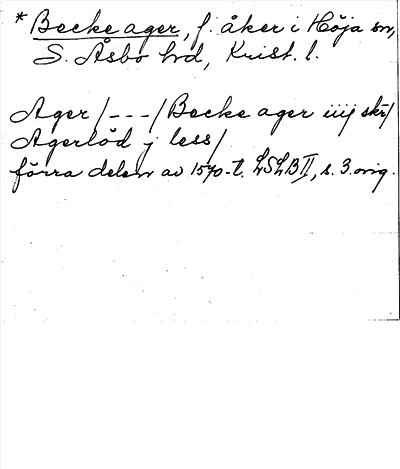 * Becke ager, f. åker i Höja sn,
S. Åsbo hd, Krist. l.
Ager / - - - / Becke ager iiij skr /
Agerlöd j less /
förra delen av 1570-t. LSLB II, s. 3. orig.